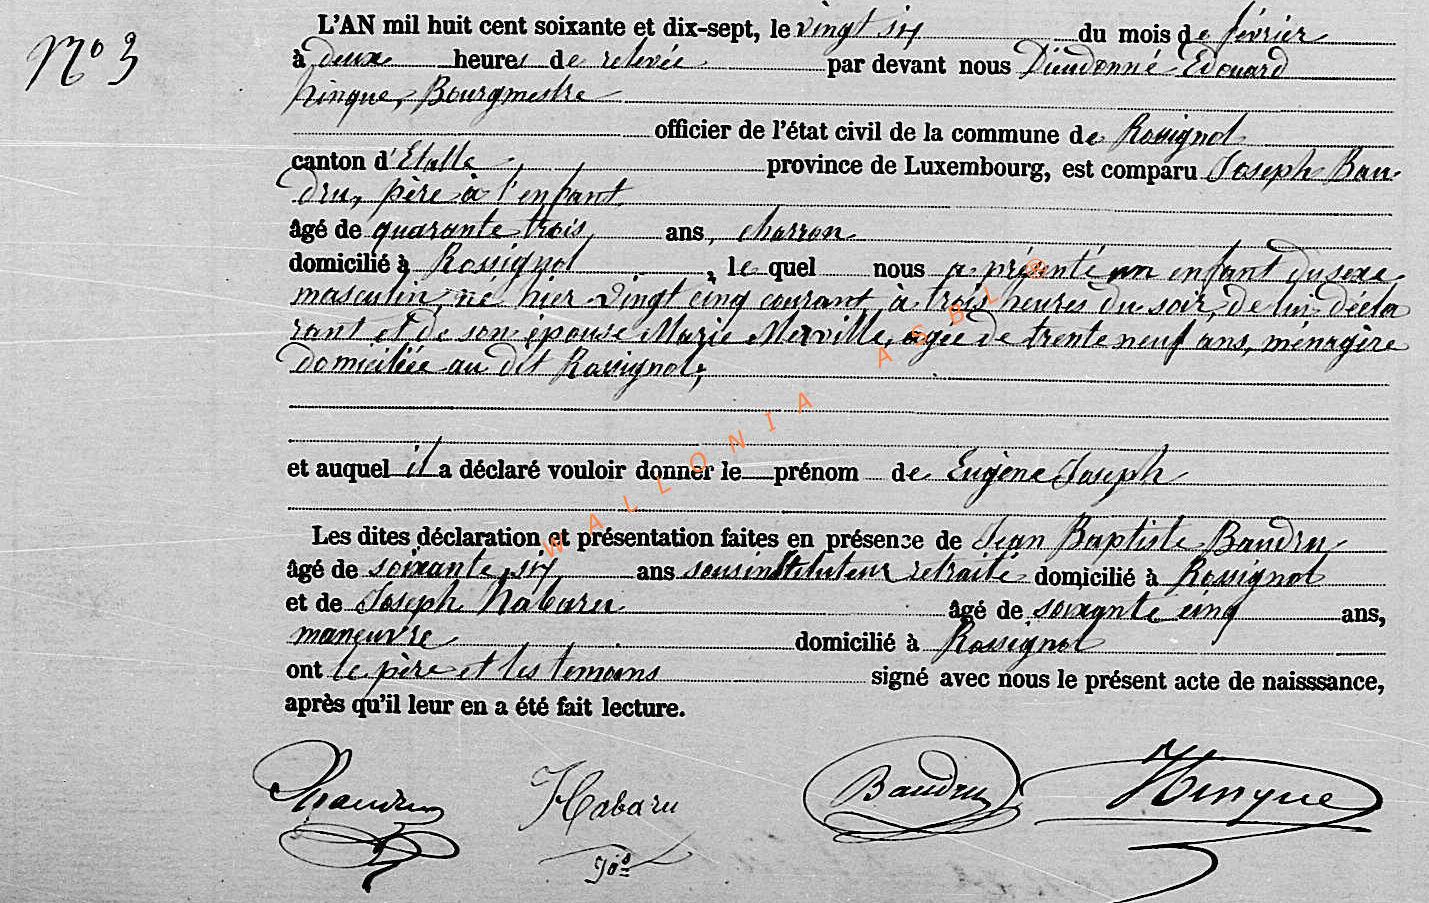 N° 3
L'AN mil huit cent soixante et dix-sept, le vingt six du mois de février
à deux heures de relevée par devant nous Dieudonné Edouard
Hinque, Bourgmestre
officier de l'état civil de la commune de Rossignol
canton d'Etalle province de Luxembourg, est comparu Joseph Bau-
dru, père à l'enfant
âgé de quarante trois ans, charron
domicilié à Rossignol, le quel nous a présenté un enfant du sexe
masculin, né hier vingt cinq courant, à trois heures du soir, de lui décla
rant et de son épouse Marie Merville, agée de trente neuf ans, ménagère
domiciliée au dit Rossignol;
et auquel il a déclaré vouloir donner le prénom de Eugène Joseph
Les dites déclaration et présentation faites en présence de Jean Baptiste Baudru
âgé de soixante six ans sous instituteur retraité domicilié à Rossignol
et de Joseph Habaru âgé de soixante cinq ans,
manœuvre domicilié à Rossignol
ont le père et les temoins signé avec nous le présent acte de naisssance,
après qu'il leur en a été fait lecture.
Baudru Habaru Baudru Hinque
Jos
WALLONIA ASBL ®